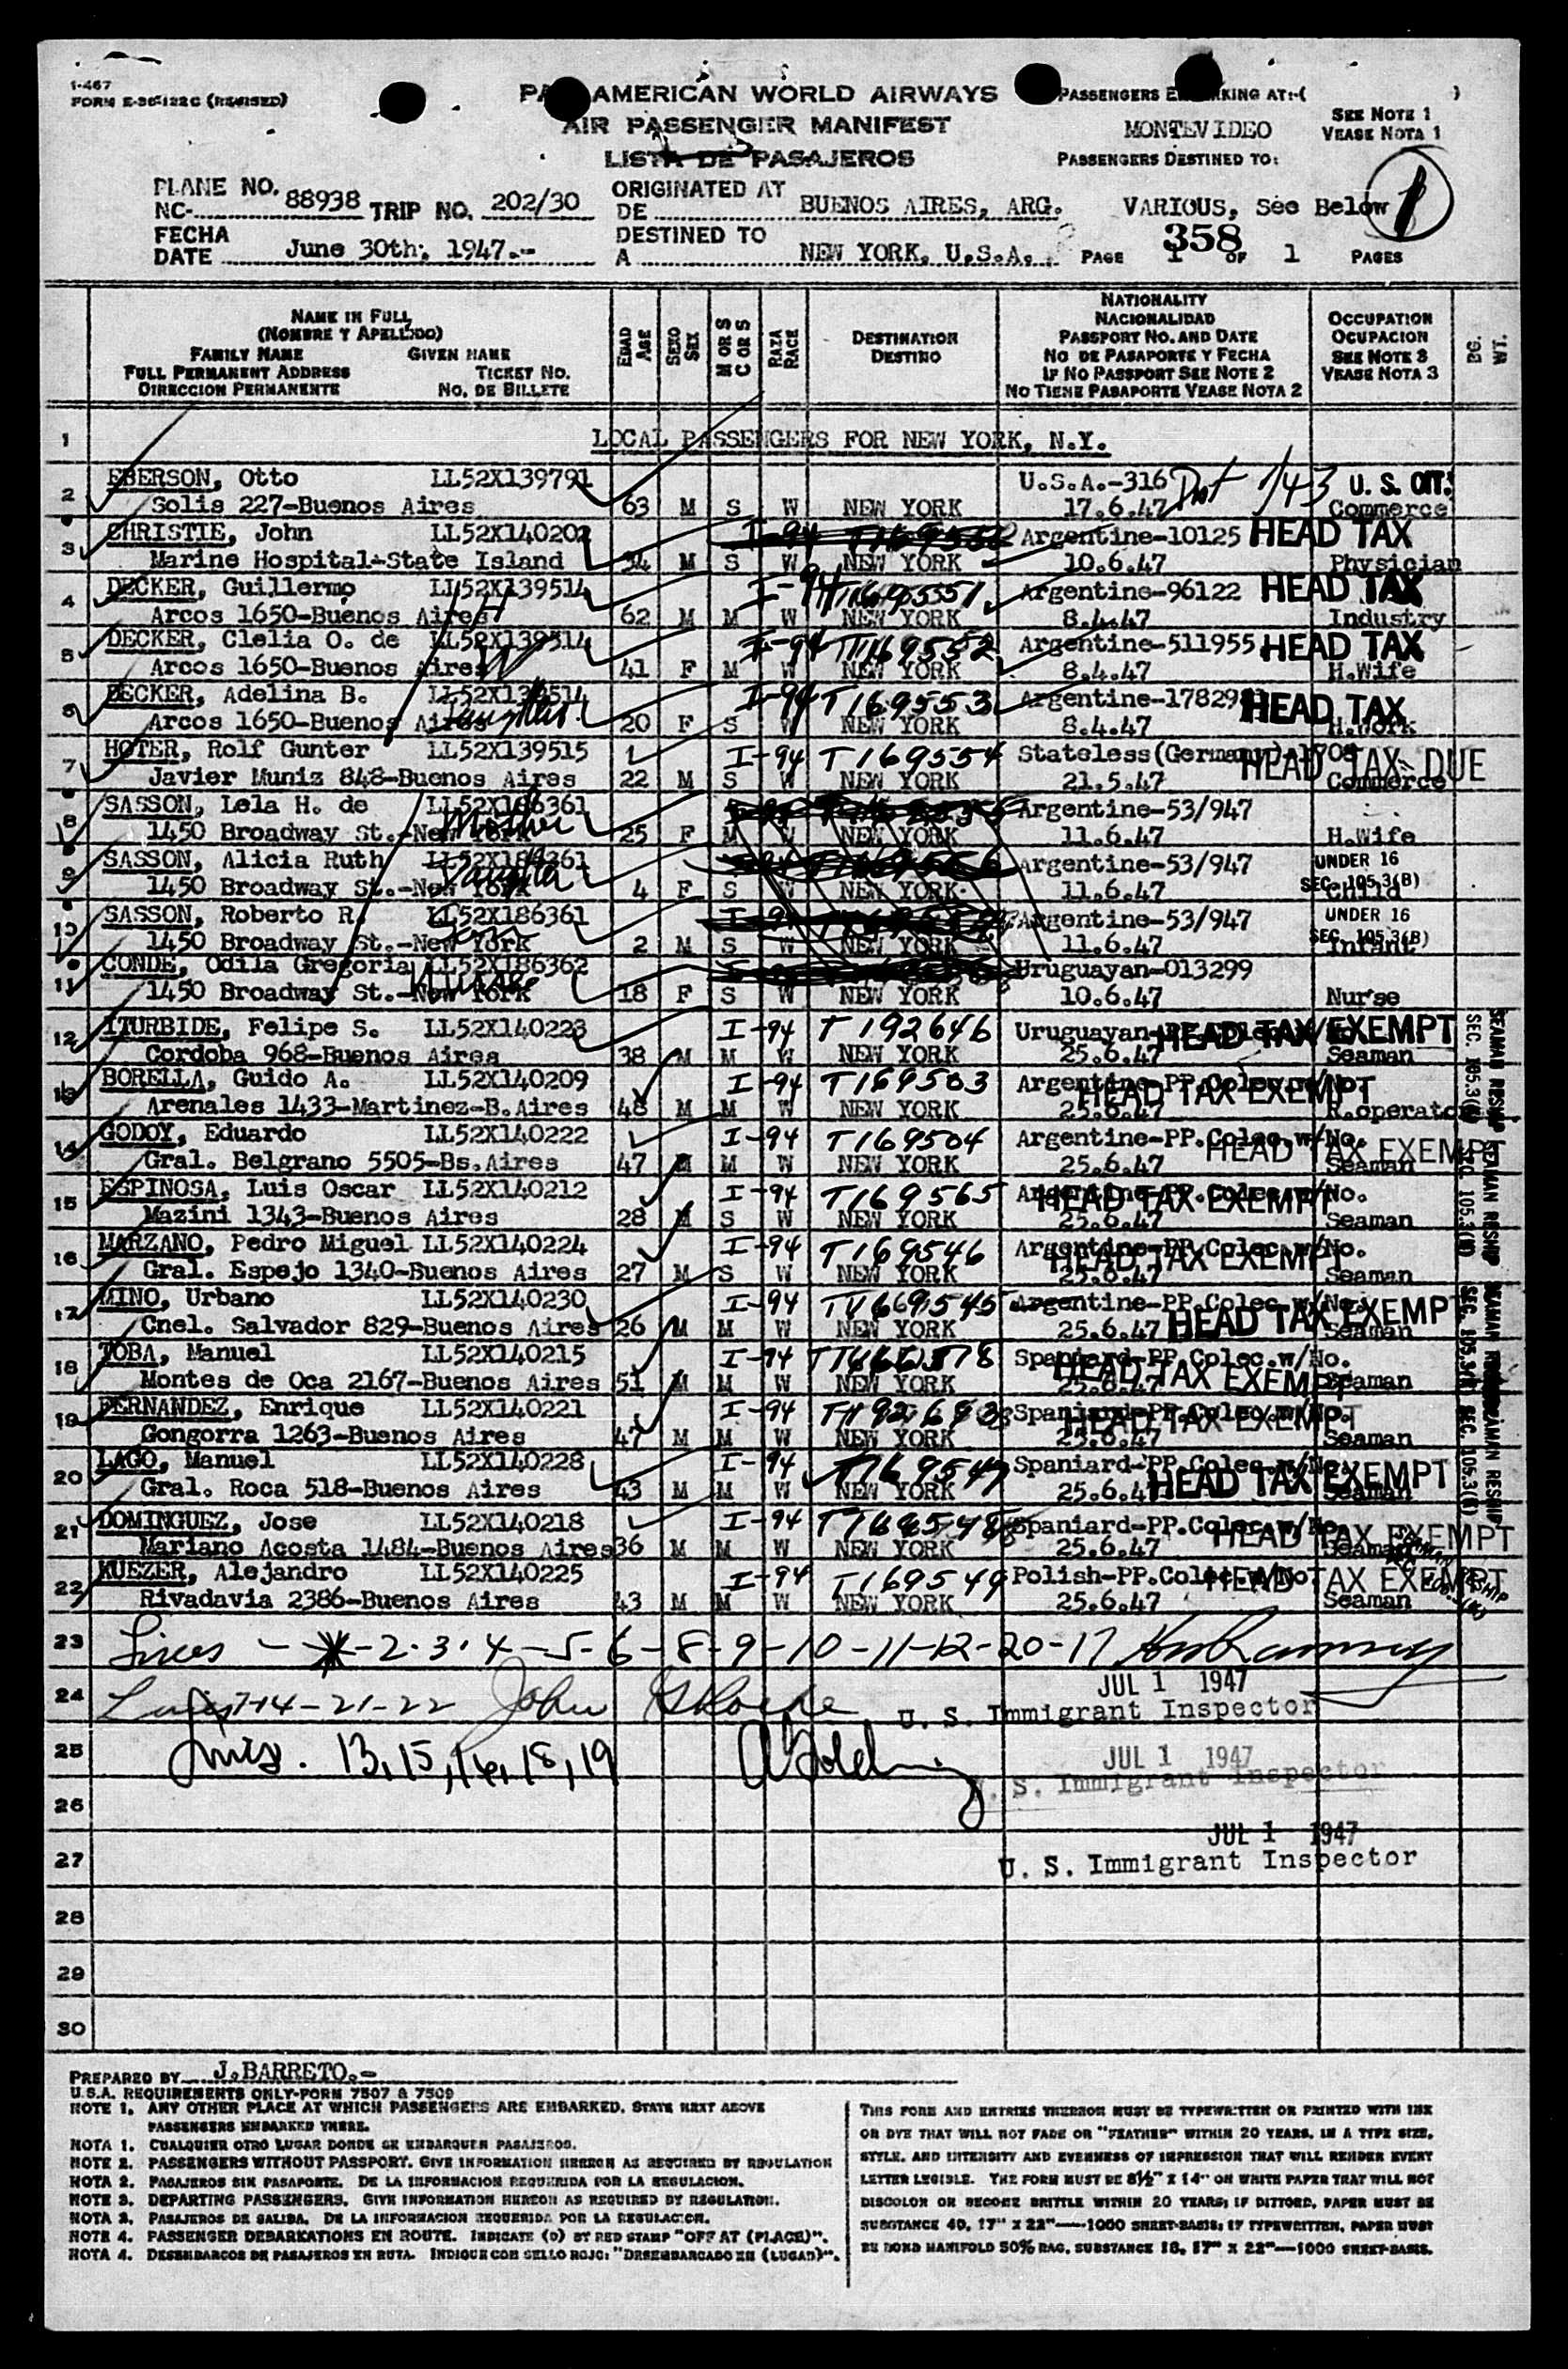 1-467
FORM E-36-122C (REVISED)
PAN AMERICAN WORLD AIRWAYS
AIR PASSENGER MANIFEST
LISTA DE PASAJEROS
PASSENGERS EMBARKING AT:-( )
MONTEVIDEO
SEE NOTE 1
VEASE NOTA 1
PASSENGERS DESTINED TO:
VARIOUS, See Below
1
PLANE NO.
NC- 88938 TRIP NO. 202/30
ORIGINATED AT
DE BUENOS AIRES, ARG.
FECHA
DATE June 30th; 1947.-
DESTINED TO
A NEW YORK, U.S.A.
358
PAGE 1 OF 1 PAGES
NAME IN FULL
(NOMBRE Y APELLIDO)
FAMILY NAME GIVEN NAME
FULL PERMANENT ADDRESS TICKET NO.
DIRECCION PERMANENTE NO. DE BILLETE
EDAD AGE
SEXO SEX
M OR S
C OR S
RAZA RACE
DESTINATION
DESTINO
NATIONALITY
NACIONALIDAD
PASSPORT NO. AND DATE
NO DE PASAPORTE Y FECHA
IF NO PASSPORT SEE NOTE 2
NO TIENE PASAPORTE VEASE NOTA 2
OCCUPATION
OCUPACION
SEE NOTE 3
VEASE NOTA 3
BG.
WT.
1 LOCAL PASSENGERS FOR NEW YORK, N.Y.
2 EBERSON, Otto LL52X139791 U.S.A.-316 1/43 U. S. CIT.
Solis 227-Buenos Aires 63 M S W NEW YORK 17.6.47 Commerce
3 CHRISTIE, John LL52X140202 I-94 Argentine-10125 HEAD TAX
Marine Hospital-State Island 34 M S W NEW YORK 10.6.47 Physician
4 DECKER, Guillermo LL52X139514 I-94 T169551 Argentine-96122 HEAD TAX
Arcos 1650-Buenos Aires 62 M M W NEW YORK 8.4.47 Industry
5 DECKER, Clelia O. de LL52X139514 I-94 T169552 Argentine-511955 HEAD TAX
Arcos 1650-Buenos Aires W 41 F M W NEW YORK 8.4.47 H.Wife
6 DECKER, Adelina B. LL52X139514 I-94 T169553 Argentine-17829 HEAD TAX
Arcos 1650-Buenos Aires daughter 20 F S W NEW YORK 8.4.47 H.Work
7 HOTER, Rolf Gunter LL52X139515 I-94 T169554 Stateless(German) HEAD TAX DUE
Javier Muniz 848-Buenos Aires 22 M S W NEW YORK 21.5.47 Commerce
8 SASSON, Lela H. de LL52X186361 Argentine-53/947
1450 Broadway St.-New York Mother 25 F M W NEW YORK 11.6.47 H.Wife
9 SASSON, Alicia Ruth LL52X186361 Argentine-53/947 UNDER 16
1450 Broadway St.-New York Daughter 4 F S W NEW YORK 11.6.47 SEC. 105.3(B) Child
10 SASSON, Roberto R. LL52X186361 Argentine-53/947 UNDER 16
1450 Broadway St.-New York Son 2 M S W NEW YORK 11.6.47 SEC. 105.3(B) Infant
11 CONDE, Odila Gregoria LL52X186362 Uruguayan-013299
1450 Broadway St.-New York Nurse 18 F S W NEW YORK 10.6.47 Nurse
12 ITURBIDE, Felipe S. LL52X140223 I-94 T192646 Uruguayan- HEAD TAX EXEMPT
Cordoba 968-Buenos Aires 38 M M W NEW YORK 25.6.47 Seaman
13 BORELLA, Guido A. LL52X140209 I-94 T169503 Argentine-PP.Colec.w/No. HEAD TAX EXEMPT
Arenales 1433-Martinez-B.Aires 48 M M W NEW YORK 25.6.47 R.operator
14 GODOY, Eduardo LL52X140222 I-94 T169504 Argentine-PP.Colec.w/No. HEAD TAX EXEMPT
Gral. Belgrano 5505-Bs.Aires 47 M M W NEW YORK 25.6.47 Seaman
15 ESPINOSA, Luis Oscar LL52X140212 I-94 T169565 Argentine-PP.Colec.w/No. HEAD TAX EXEMPT
Mazini 1343-Buenos Aires 28 M S W NEW YORK 25.6.47 Seaman
16 MARZANO, Pedro Miguel LL52X140224 I-94 T169546 Argentine-PP.Colec.w/No. HEAD TAX EXEMPT
Gral. Espejo 1340-Buenos Aires 27 M S W NEW YORK 25.6.47 Seaman
17 MINO, Urbano LL52X140230 I-94 Argentine-PP.Colec.w/No. HEAD TAX EXEMPT
Cnel. Salvador 829-Buenos Aires 26 M M W NEW YORK 25.6.47 Seaman
18 TOBA, Manuel LL52X140215 I-94 Spaniard-PP.Colec.w/No. HEAD TAX EXEMPT
Montes de Oca 2167-Buenos Aires 51 M M W NEW YORK 25.6.47 Seaman
19 FERNANDEZ, Enrique LL52X140221 I-94 Spaniard-PP.Colec.w/No. HEAD TAX EXEMPT
Gongorra 1263-Buenos Aires 47 M M W NEW YORK 25.6.47 Seaman
20 LAGO, Manuel LL52X140228 I-94 T169547 Spaniard-PP.Colec.w/No. HEAD TAX EXEMPT
Gral. Roca 518-Buenos Aires 43 M M W NEW YORK 25.6.47 Seaman
21 DOMINGUEZ, Jose LL52X140218 I-94 T169548 Spaniard-PP.Colec.w/No. HEAD TAX EXEMPT
Mariano Acosta 1484-Buenos Aires 36 M M W NEW YORK 25.6.47 Seaman
22 KUEZER, Alejandro LL52X140225 I-94 T169549 Polish-PP.Colec.w/No HEAD TAX EXEMPT
Rivadavia 2386-Buenos Aires 43 M M W NEW YORK 25.6.47 Seaman
23 Lines - 2-3-4-5-6-8-9-10-11-12-20-17
24 Lines 7-14-21-22 John
JUL 1 1947
U. S. Immigrant Inspector
25 Lines. 13,15,16,18,19
JUL 1 1947
U. S. Immigrant Inspector
26
JUL 1 1947
27 U. S. Immigrant Inspector
28
29
30
PREPARED BY J.BARRETO.-
U.S.A. REQUIREMENTS ONLY-FORM 7507 & 7509
NOTE 1. ANY OTHER PLACE AT WHICH PASSENGERS ARE EMBARKED. STATE NEXT ABOVE
PASSENGERS EMBARKED THERE.
NOTA 1. CUALQUIER OTRO LUGAR DONDE SE EMBARQUEN PASAJEROS.
NOTE 2. PASSENGERS WITHOUT PASSPORT. GIVE INFORMATION HEREON AS REQUIRED BY REGULATION
NOTA 2. PASAJEROS SIN PASAPORTE. DE LA INFORMACION REQUERIDA POR LA REGULACION.
NOTE 3. DEPARTING PASSENGERS. GIVE INFORMATION HEREON AS REQUIRED BY REGULATION.
NOTA 3. PASAJEROS DE SALIDA. DE LA INFORMACION REQUERIDA POR LA REGULACION.
NOTE 4. PASSENGER DEBARKATIONS EN ROUTE. INDICATE (D) BY RED STAMP "OFF AT (PLACE)".
NOTA 4. DESEMBARCOS DE PASAJEROS EN RUTA. INDIQUE CON SELLO ROJO: "DESEMBARCADO EN (LUGAR)".
THIS FORM AND ENTRIES THEREON MUST BE TYPEWRITTEN OR PRINTED WITH INK
OR DYE THAT WILL NOT FADE OR "FEATHER" WITHIN 20 YEARS, IN A TYPE SIZE,
STYLE, AND INTENSITY AND EVENNESS OF IMPRESSION THAT WILL RENDER EVERY
LETTER LEGIBLE. THE FORM MUST BE 8½" X 14" ON WHITE PAPER THAT WILL NOT
DISCOLOR OR BECOME BRITTLE WITHIN 20 YEARS; IF DITTOED, PAPER MUST BE
SUBSTANCE 40, 17" X 22"—1000 SHEET-BASIS; IF TYPEWRITTEN, PAPER MUST
BE BOND MANIFOLD 50% RAG, SUBSTANCE 16, 17" X 22"—1000 SHEET-BASIS.